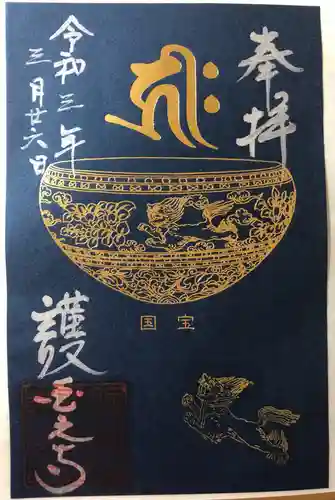 奉拝
令和三年
三月廿六日
国宝
護国之寺